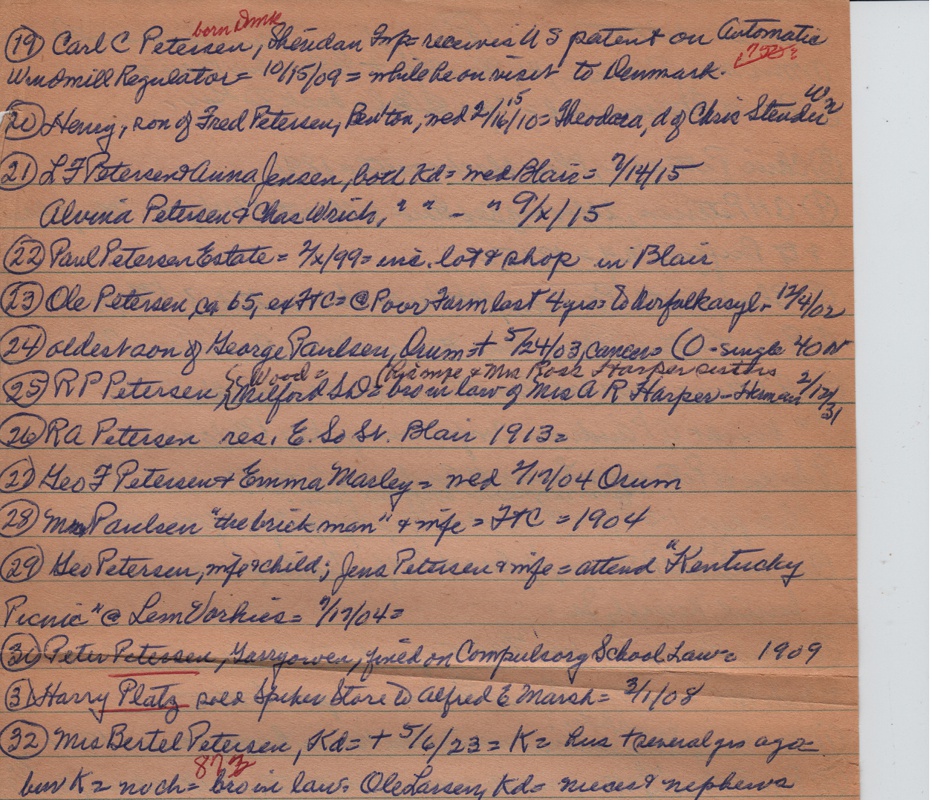 born Dmk
(19) Carl C Petersen, Sheridan Twp = receives U S patent on Automatic
Windmill Regulator = 10/15/09 = while he on visit to Denmark.
(20) Henry, son of Fred Petersen, Benton, wed 2/16/10 = Theodora, d of Chris Stender
(21) L F Petersen & Anna Jensen, both Kd = wed Blair = 7/14/15
Alvina Petersen & Chas Wrich, " " - " 9/x/15
(22) Paul Petersen Estate = 7/x/99 = inc. lot & shop in Blair
(23) Ole Petersen, ca 65, ex FtC = @ Poor Farm last 4 yrs = to Norfolk asyl - 12/4/02
(24) oldest son of George Paulsen, Orum = + 5/24/03, cancer = (O - single 40
his wife & Mrs Ross Harper sisters
(25) R P Petersen, Milford = bro in law of Mrs A R Harper - Herman 2/12/31
(26) R A Petersen res. E. So St. Blair 1913 =
(27) Geo F Petersen & Emma Masley = wed 2/17/04 Orum
(28) Wm Paulsen "the brick man" & wife = FtC = 1904
(29) Geo Petersen, wife & child; Jens Petersen & wife = attend "Kentucky
Picnic" @ Lem Vorhies = 7/17/04 =
(30) Peter Petersen, Garryowen, fined on Compulsory School Law = 1909
(31) Harry Platz sold Spiker Store to Alfred E Marsh = 3/1/08
(32) Mrs Bertel Petersen, Kd = + 5/6/23 = K = hus + several yrs ago =
bur K = no ch = bro in law = Ole Larsen, Kd = nieces & nephews